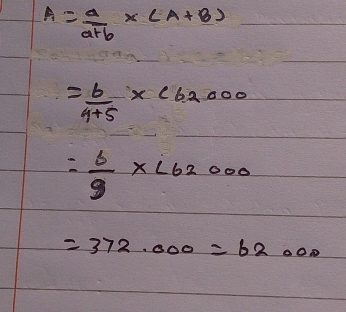 A = a/a+b × (A+B)
= b/4+5 × (62.000
= 6/9 × (62 000
= 372.000 = 62 000